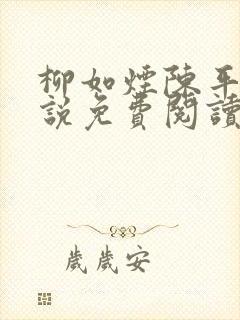 柳如煙陳平
說免費閱讀
歲歲安